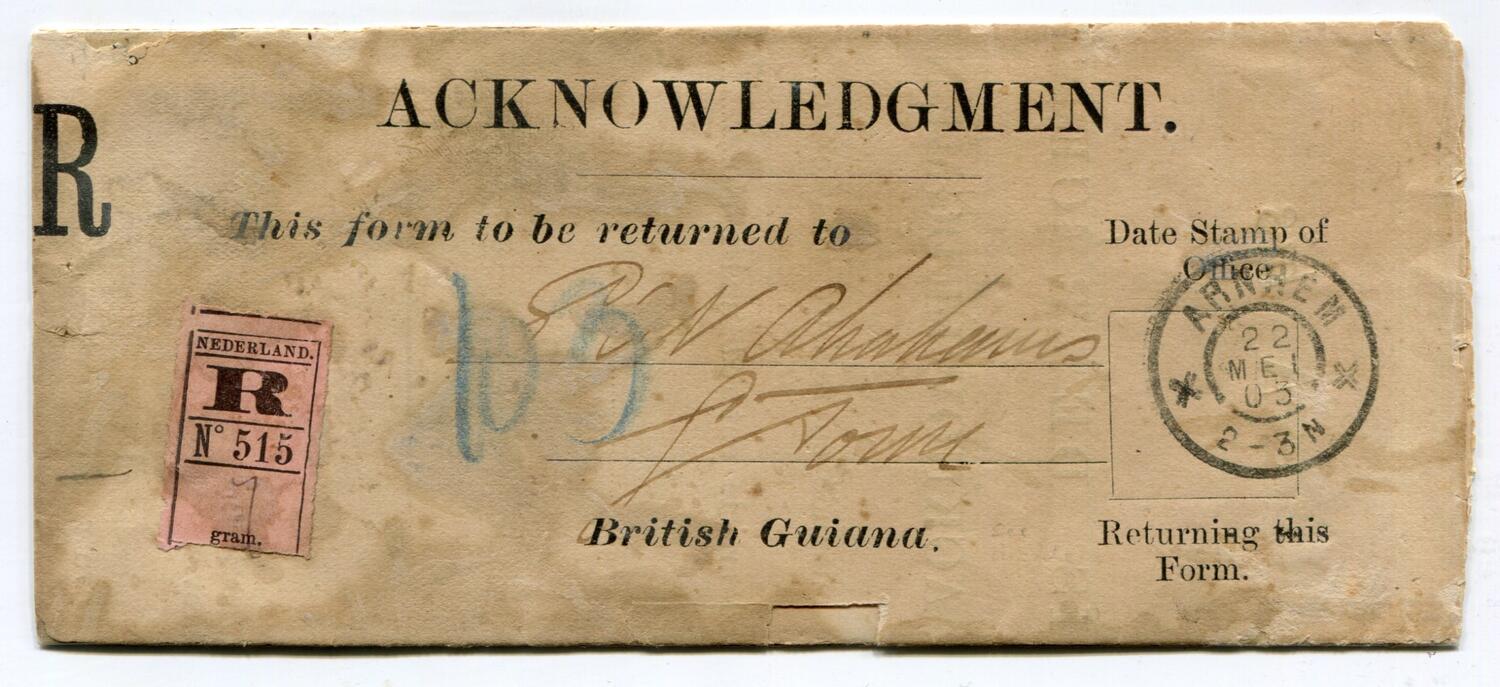 ACKNOWLEDGMENT.
R
This form to be returned to
Date Stamp of
Office
ARNHEM
22
MEI
03
2-3N
Abrahams
NEDERLAND.
R
N° 515
7
gram.
G Town
British Guiana.
Returning this
Form.